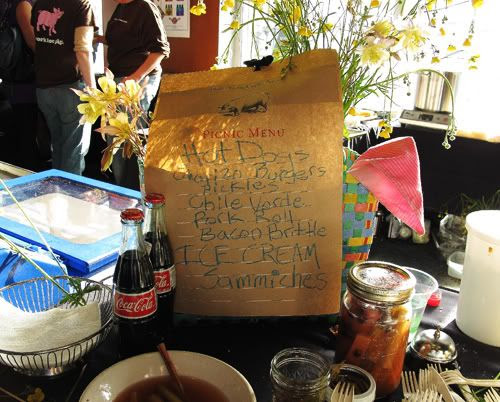 PICNIC MENU
Hot Dogs
Chorizo Burgers
Pickles
Chile Verde
Pork Roll
Bacon Brittle
ICE CREAM
Sammiches
Coca-Cola
Coca-Cola